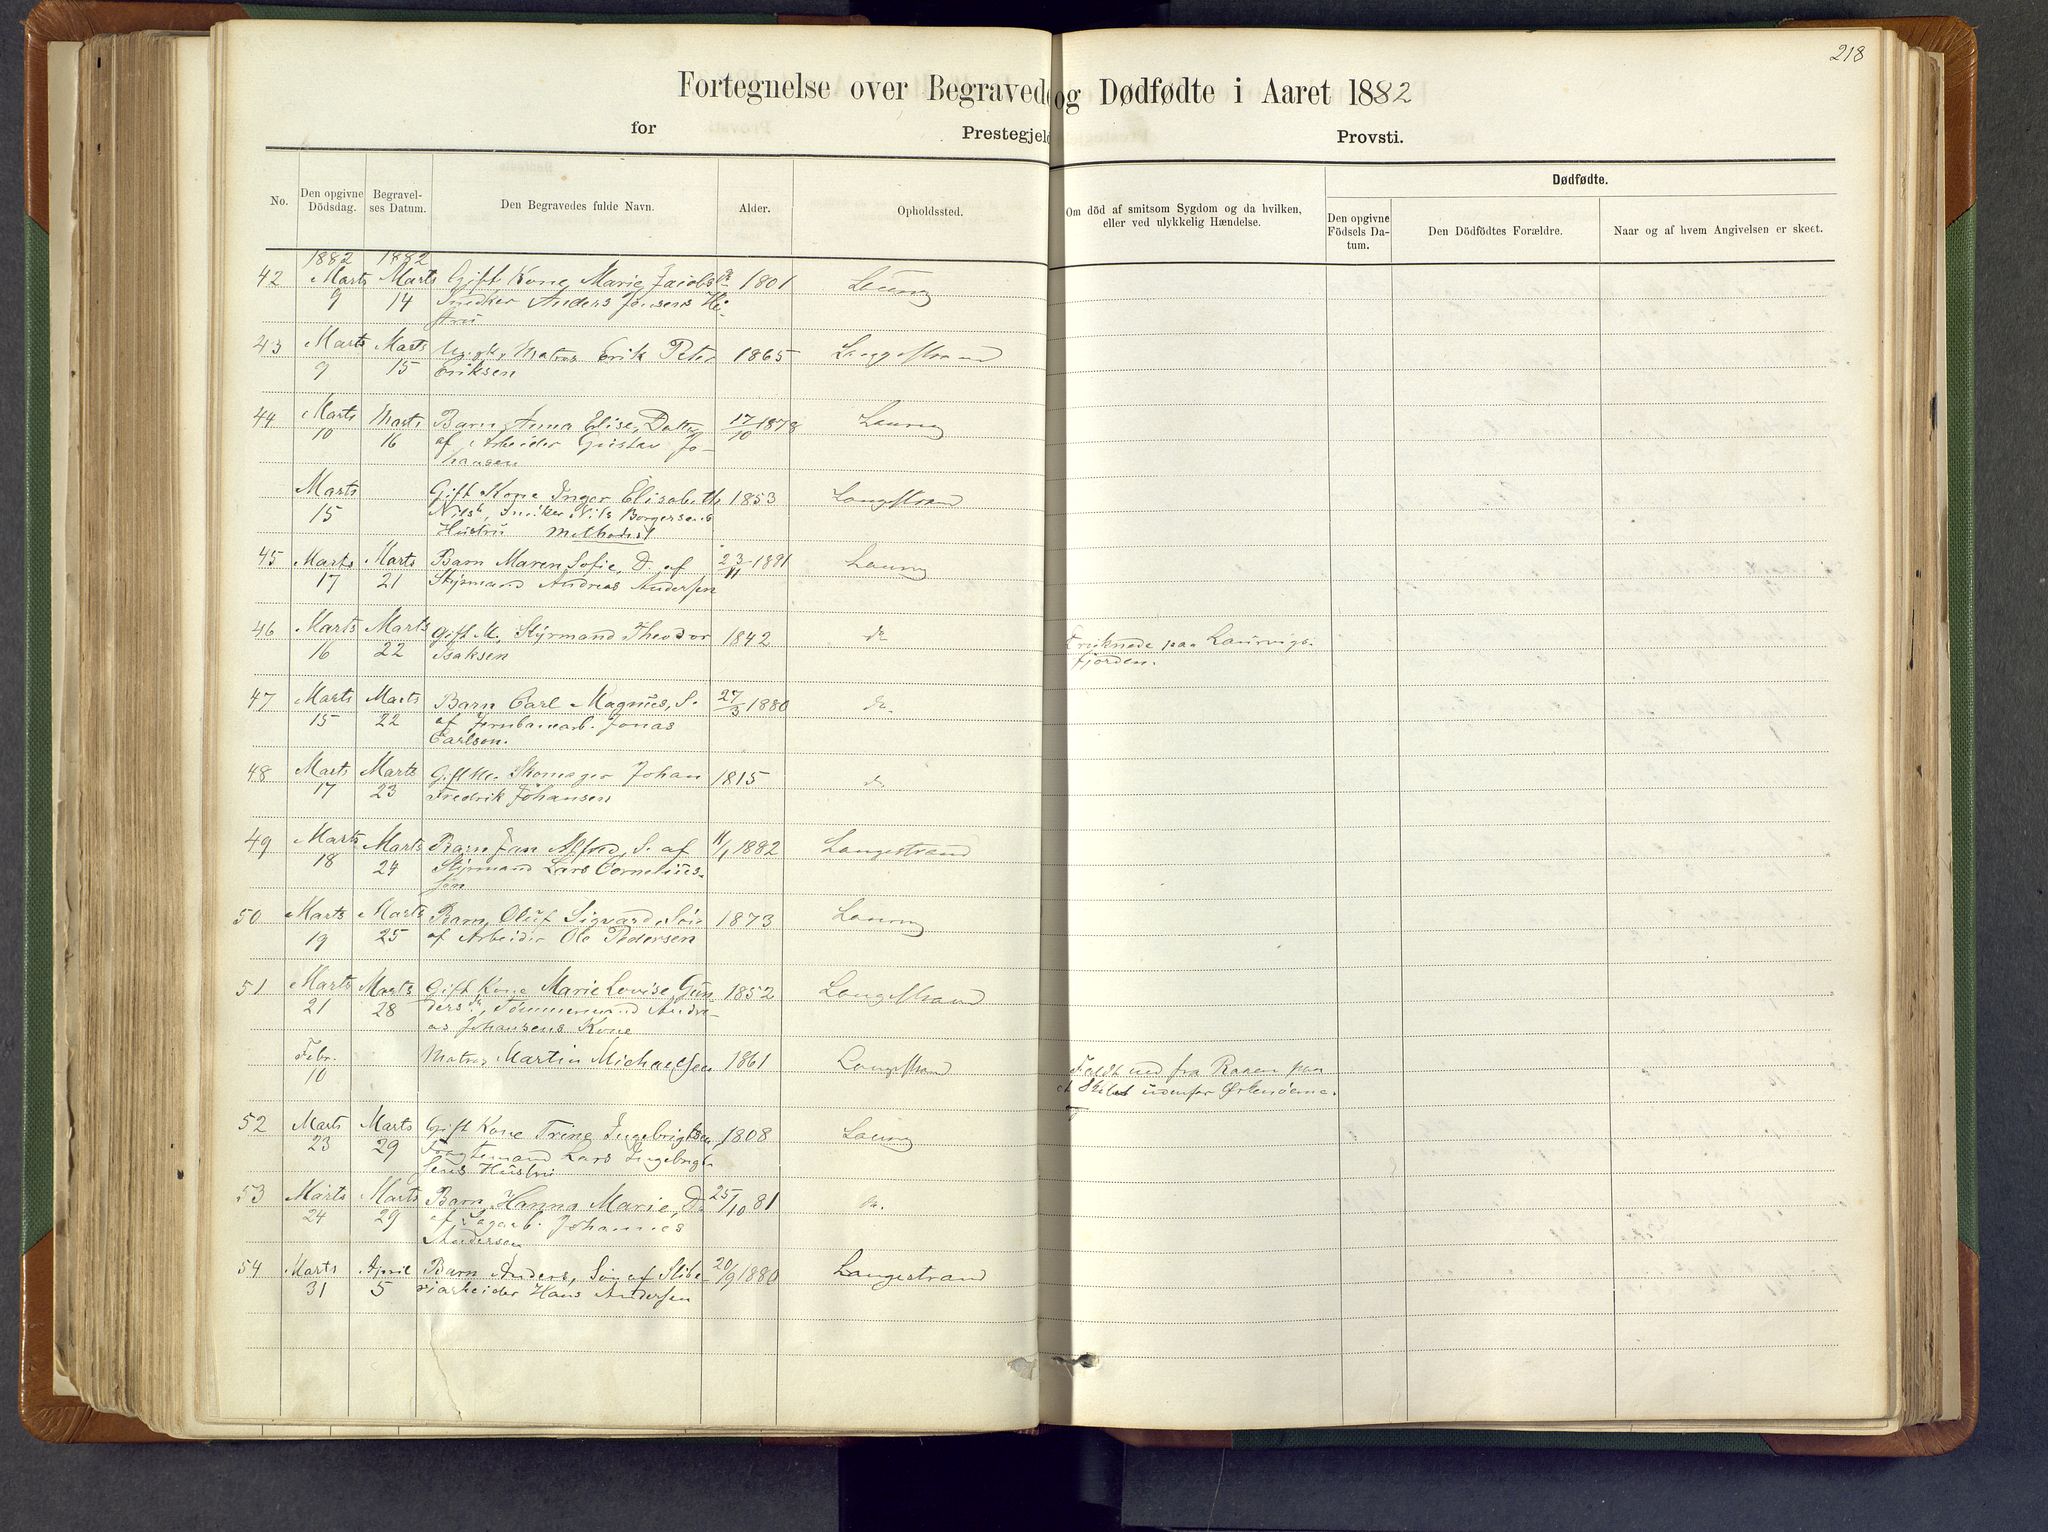 218
Fortegnelse over Begravede og Dødfødte i Aaret 1882
for Prestegjeld Provsti.
No. Den opgivne Dödsdag. Begravelses Datum. Den Begravedes fulde Navn. Alder. Opholdssted. Om död af smitsom Sygdom og da hvilken, eller ved ulykkelig Hændelse. Dødfødte.
Den opgivne Födsels Datum. Den Dödfödtes Forældre. Naar og af hvem Angivelsen er skeet.
1882 1882
42 Marts Marts Gift Kone Marie Jacobsdr 1801 Laurv
9 14 Snedker Anders Jensens Hu-
stru
43 Marts Marts Ungk. Matros Erik Peter 1865 Langgestrand
9 15 Eriksen
44 Marts Marts Barn Anna Elise, Datter 17/10 1878 Laurv
10 16 af Arbeider Gustav Jo-
hansen
Marts Gift Kone Inger Elisabeth 1853 Langestrand
15 Nilsd, Snedker Nils Borgersens
Hustru Methodist
45 Marts Marts Barn Maren Sofie, D. af 23/11 1881 Laurv
17 21 Styrmand Andreas Andersen
46 Marts Marts Gift M. Styrmand Theodor 1842 do Druknede paa Laurvigs-
16 22 Isaksen fjorden.
47 Marts Marts Barn Carl Magnus, S. 27/3 1880 do
15 22 af Jernbanearb. Jonas
Carlson.
48 Marts Marts Gift M. Skomager Johan 1815 do
17 23 Fredrik Johansen
49 Marts Marts Barn Jan Alfred, S. af 11/1 1882 Langestrand
18 24 Styrmand Lars Cornelius-
søn
50 Marts Marts Barn Oluf Sigvard, Søn 1873 Laurv
19 25 af Arbeider Ole Pedersen
51 Marts Marts Gift Kone Marie Lovise Gun- 1852 Langestrand
21 28 dersdr, Tømmermand Andre-
as Johansens Kone
Febr. Matros Martin Michaelsen 1861 Langestrand Faldt ned fra Raaen paa
10 et Skib udenfor Ørkenøerne.
52 Marts Marts Gift Kone Trine Ingebrigtsen 1808 Laurv
23 29 Fragtemand Lars Ingebrigt-
sens Hustru
53 Marts Marts Barn, Hanna Marie, D. 25/10 81 do.
24 29 af Sagarb. Johannes
Andersen
54 Marts April Barn Anders, Søn af Slibe- 20/9 1880 Langestrand
31 5 riarbeider Hans Andersen